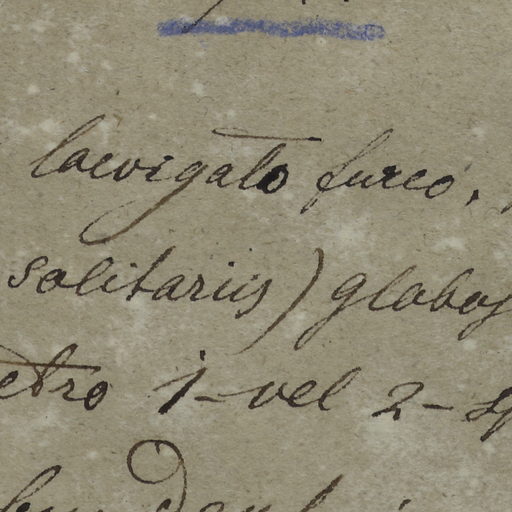 laevigato furco,
solitariis) globos
etro 1-vel 2-sp